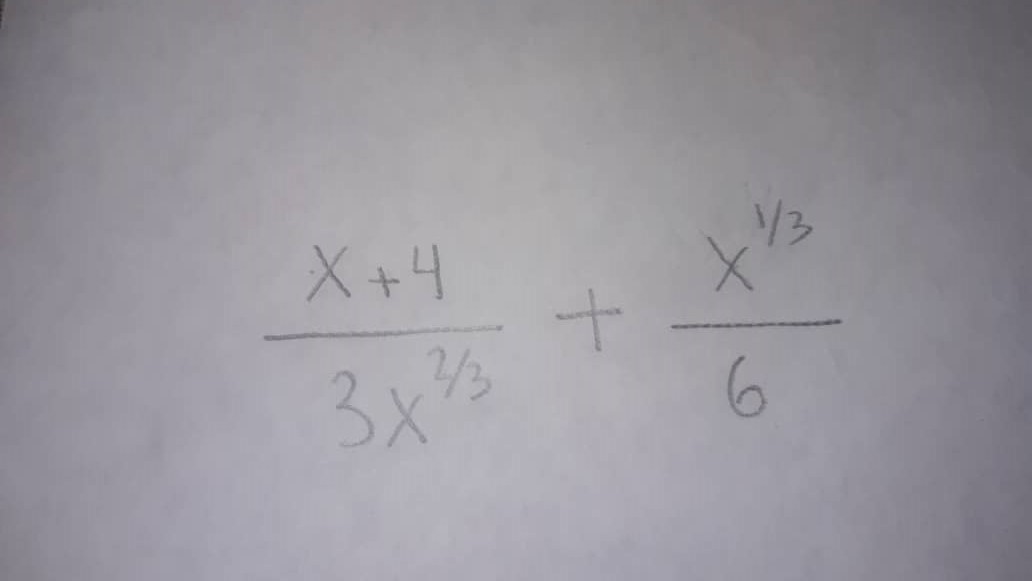 x + 4 / 3x^{2/3} + x^{1/3} / 6